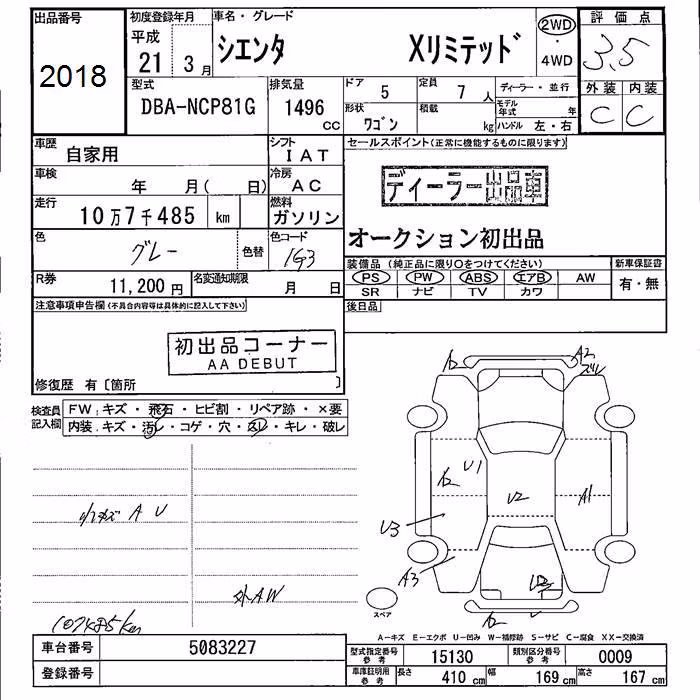 出品番号
2018
初度登録年月
平成
21 3月
車名・グレード
シエンタ Xリミテッド
2WD
・
4WD
評価点
3.5
外装 内装
C C
型式
DBA-NCP81G
排気量
1496
CC
ドア 5
定員 7人
形状
ワゴン
積載
kg
ディーラー・並行
モデル
年式 年
ハンドル 左・右
車歴
自家用
シフト
IAT
車検
年 月( 日)
冷房
AC
走行
10万7千485 km
燃料
ガソリン
色
グレー
色替
色コード
1G3
R券
11,200円
名変通知期限
月 日
セールスポイント(正常に機能するものに限ります)
ディーラー出品車
オークション初出品
装備品(純正品に限り○をつけてください)
PS PW ABS エアB AW
SR ナビ TV カワ
新車保証書
有・無
後日品
注意事項申告欄(不具合内容等は具体的に記入して下さい)
初出品コーナー
AA DEBUT
修復歴 有〔箇所 〕
検査員
記入欄
FW:キズ・飛石・ヒビ割・リペア跡・×要
内装:キズ・汚レ・コゲ・穴・スレ・キレ・破レ
A2
A2
U1
A2
U2
A1
U3
A3
A2
スペア
A U
外AW
107485km
A-キズ E-エクボ U-凹み W-補修跡 S-サビ C-腐食 XX-交換済
車台番号 5083227
登録番号
型式指定番号
参考
15130
類別区分番号
参考
0009
車庫証明用
参考
長さ 410 cm 幅 169 cm 高さ 167 cm